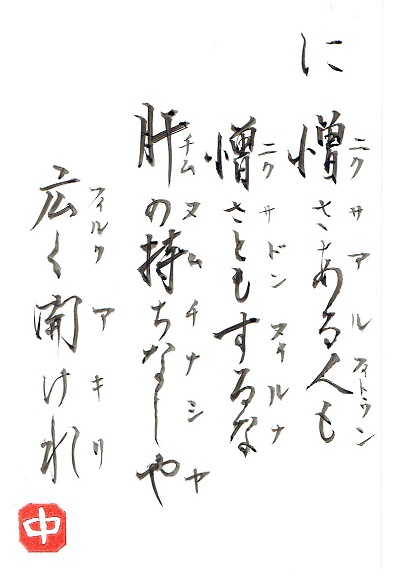 に
憎さある人も
ニクサアルフィトゥン
憎さともするな
ニクサドンスィルナ
肝の持ちなしや
チムヌムチナシヤ
広く開けれ
フィルクアキリ
中